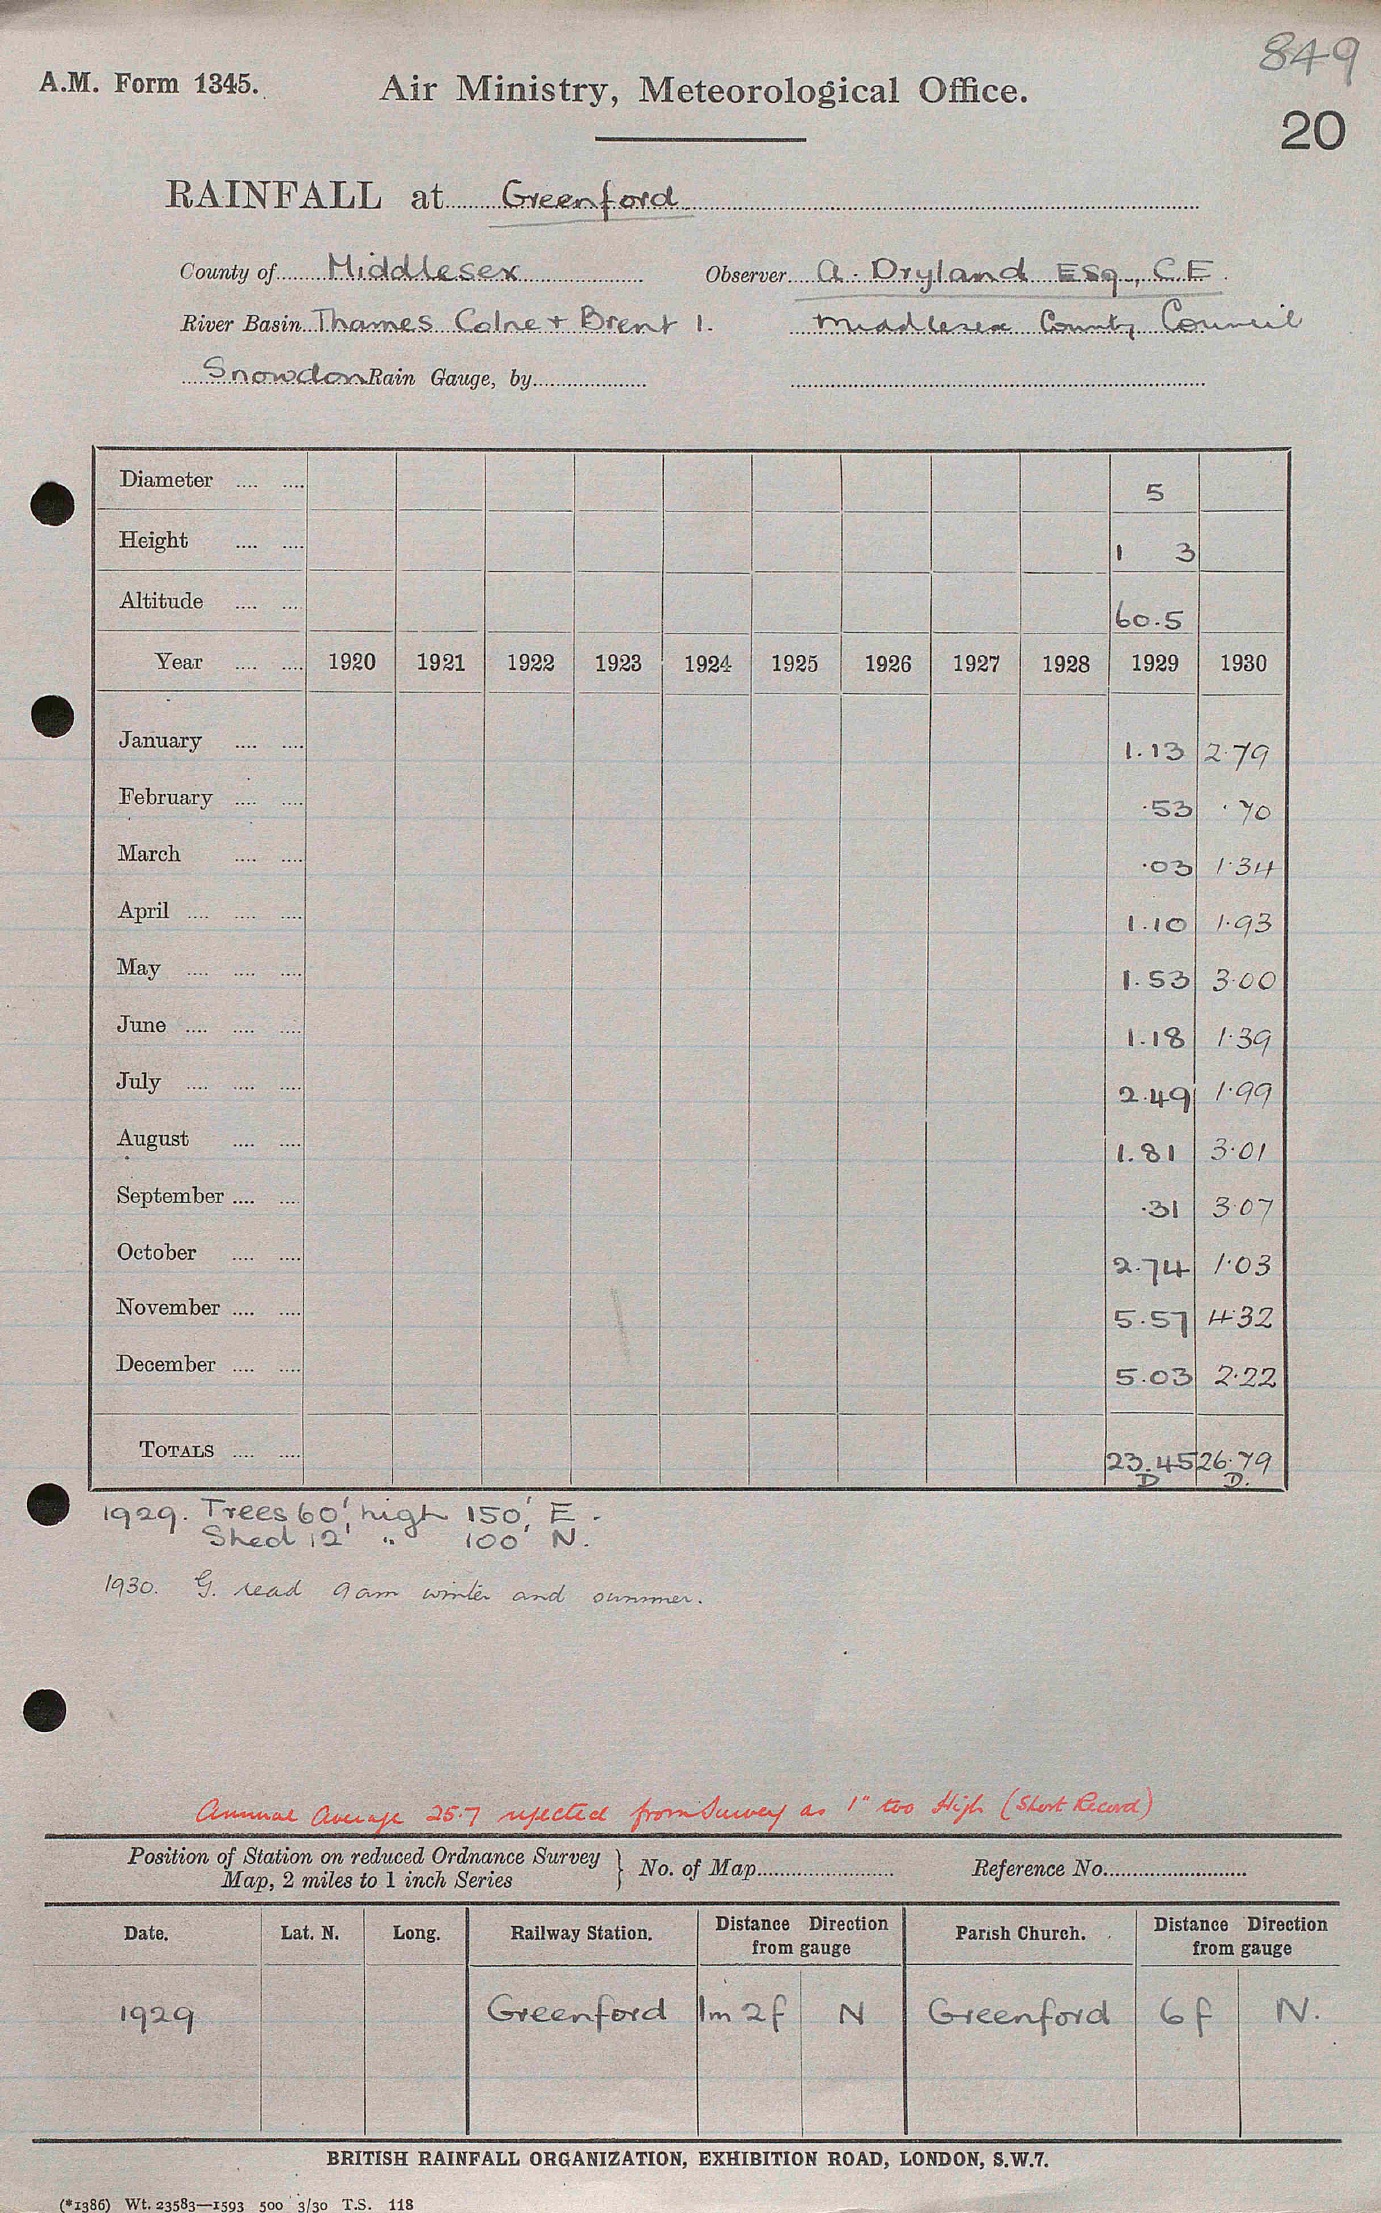 849
A.M. Form 1345.
Air Ministry, Meteorological Office.
20
RAINFALL at Greenford
County of Middlesex Observer A. Dryland Esq., C.E.
River Basin Thames Colne + Brent 1. Middlesex County Council
Snowdon Rain Gauge, by
Diameter .... .... 5
Height .... .... 1 3
Altitude .... .... 60.5
Year .... .... 1920 1921 1922 1923 1924 1925 1926 1927 1928 1929 1930
January .... .... 1.13 2.79
February .... .... .53 .70
March .... .... .03 1.34
April .... .... .... 1.10 1.93
May .... .... .... 1.53 3.00
June .... .... .... 1.18 1.39
July .... .... .... 2.49 1.99
August .... .... 1.81 3.01
September .... .... .31 3.07
October .... .... 2.74 1.03
November .... .... 5.57 4.32
December .... .... 5.03 2.22
TOTALS .... .... 23.45 26.79
D D.
1929. Trees 60' high 150' E.
Shed 12' " 100' N.
1930. G. read 9am winter and summer.
Annual Average 25.7 rejected from Survey as 1" too High (Short Record)
Position of Station on reduced Ordnance Survey Map, 2 miles to 1 inch Series } No. of Map Reference No.
Date. Lat. N. Long. Railway Station. Distance Direction from gauge Parish Church. Distance Direction from gauge
1929 Greenford 1m 2f N Greenford 6f N.
BRITISH RAINFALL ORGANIZATION, EXHIBITION ROAD, LONDON, S.W.7.
(*1386) Wt. 23583—1593 500 3/30 T.S. 118